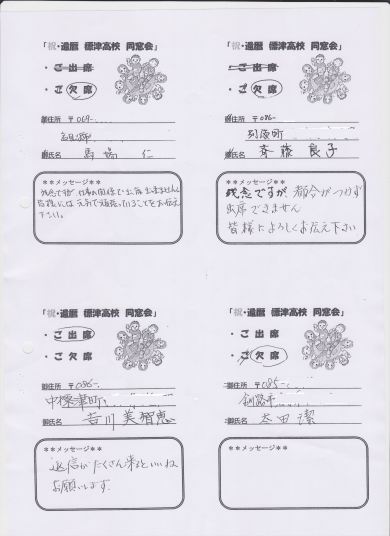 「祝・還暦 標津高校 同窓会」
・ご出席
・ご欠席
御住所 〒069-
御氏名 馬場 仁
**メッセージ**
残念ですが、仕事の関係で出席出来ません
皆様には元気で頑張っていることをお伝え
下さい。
「祝・還暦 標津高校 同窓会」
・ご出席
・ご欠席
御住所 〒086-
別海町
御氏名 斉藤 良子
**メッセージ**
残念ですが、都合がつかず
出席できません
皆様によろしくお伝え下さい
「祝・還暦 標津高校 同窓会」
・ご出席
・ご欠席
御住所 〒086-
中標津町
御氏名 吉川 美智恵
**メッセージ**
返信がたくさん来るといいね
お願いします
「祝・還暦 標津高校 同窓会」
・ご出席
・ご欠席
御住所 〒085-
釧路市
御氏名 太田 潔
**メッセージ**